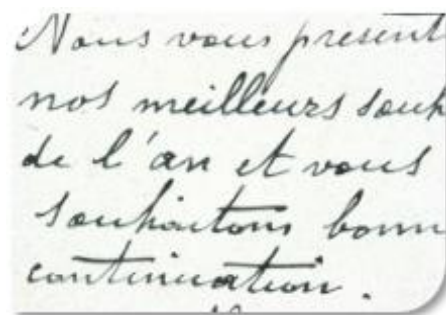 Nous vous present
nos meilleurs souh
de l'an et vous
souhaitons bonn
continuation.